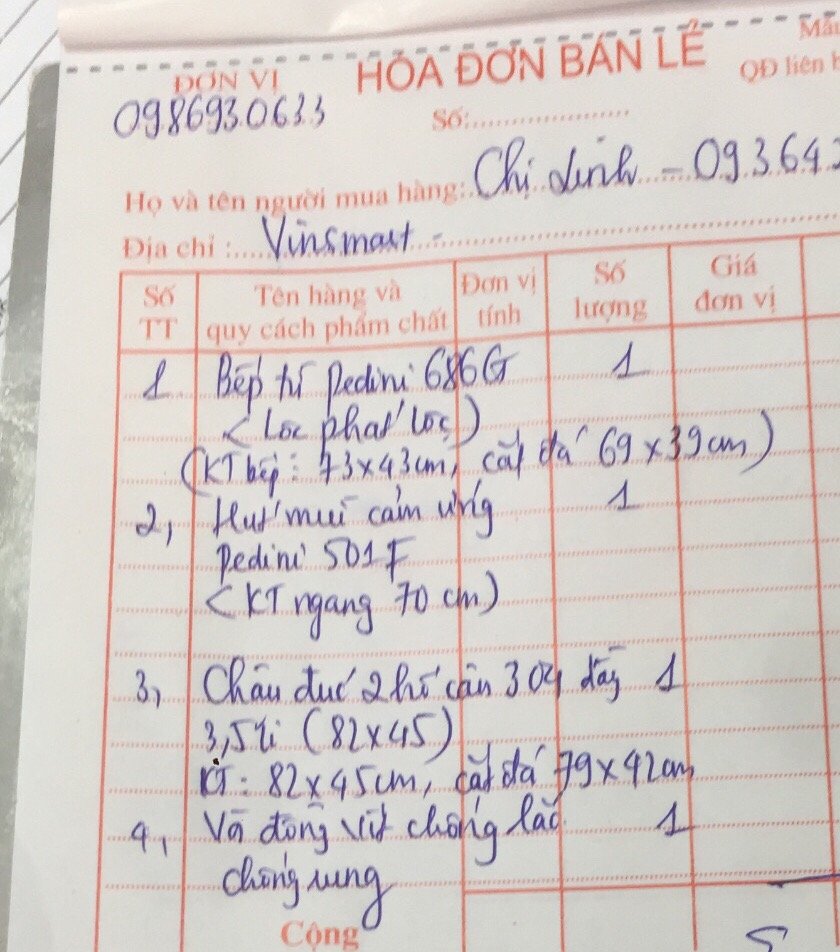 HÓA ĐƠN BÁN LẺ
Mẫu
ĐƠN VỊ
QĐ liên b
0986930633
Số:
Họ và tên người mua hàng: Chị Linh - 093642
Địa chỉ: Vinsmart -
Số TT
Tên hàng và quy cách phẩm chất
Đơn vị tính
Số lượng
Giá đơn vị
1 Bếp từ Pedini 686G 1
< Lôc phát lôc )
(KT bếp: 73x43cm, cắt đá 69x39cm)
2, Hút mùi cảm ứng 1
Pedini 501F
< KT ngang 70 cm)
3, Chậu đúc 2 hố cân 304 dầy 1
3,5li (82x45)
KT: 82x45cm, cắt đá 79x42cm
4, Vòi đồng 1
chống rung
Cộng